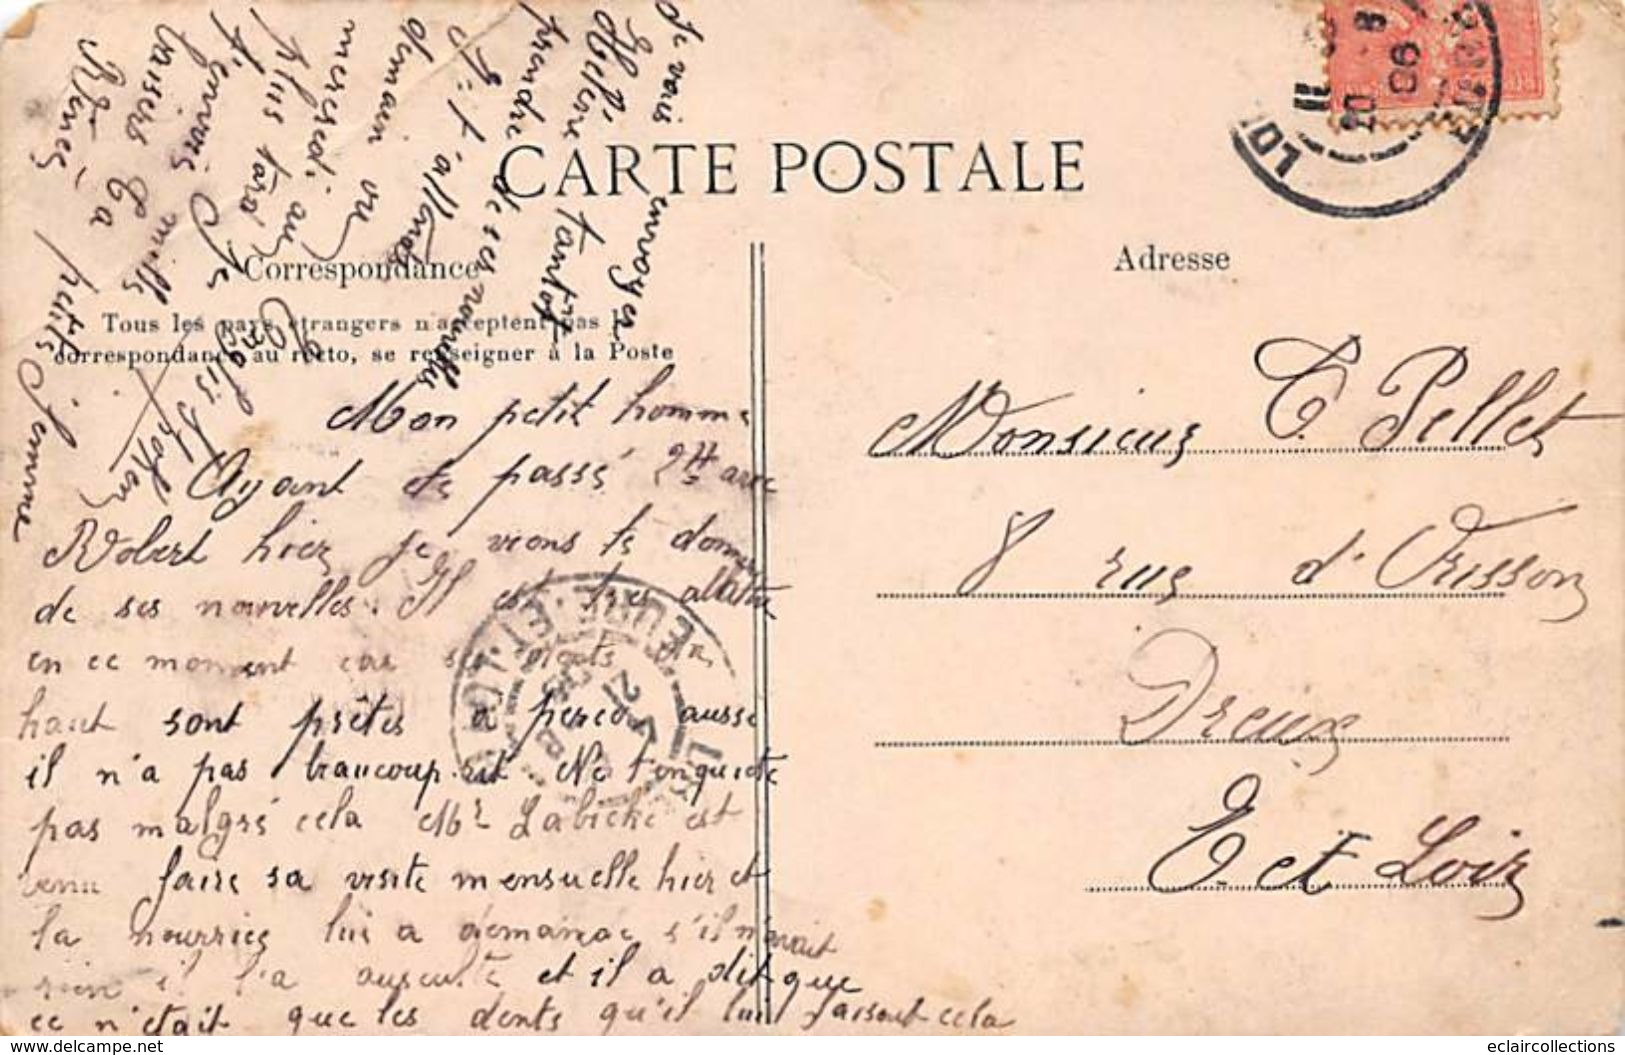 CARTE POSTALE
Correspondance
Adresse
Tous les pays étrangers n'acceptent pas la
correspondance au recto, se renseigner à la Poste
Mon petit homme
Ayant été passé 2 Hs avec
Robert hier je viens te donner
de ses nouvelles. Il est très
en ce moment car ses dents du
haut sont prêtes à percer aussi
il n'a pas beaucoup rit. Ne t'inquiète
pas malgré cela Mr Labiche est
venu faire sa visite mensuelle hier et
la nourrice lui a demandé s'il n'avait
rien il l'a ausculté et il a dit que
ce n'était que les dents qu'il lui faisait cela
Je vais envoyer
Hélène tantôt
prendre de ses nouvelles
demain vu
mercredi au
plus tard
mille
baisers ta petite femme
Monsieur E. Pellet
8 rue d'Orisson
Dreux
E et Loir
EURE-ET-LOIR
eclaircollections